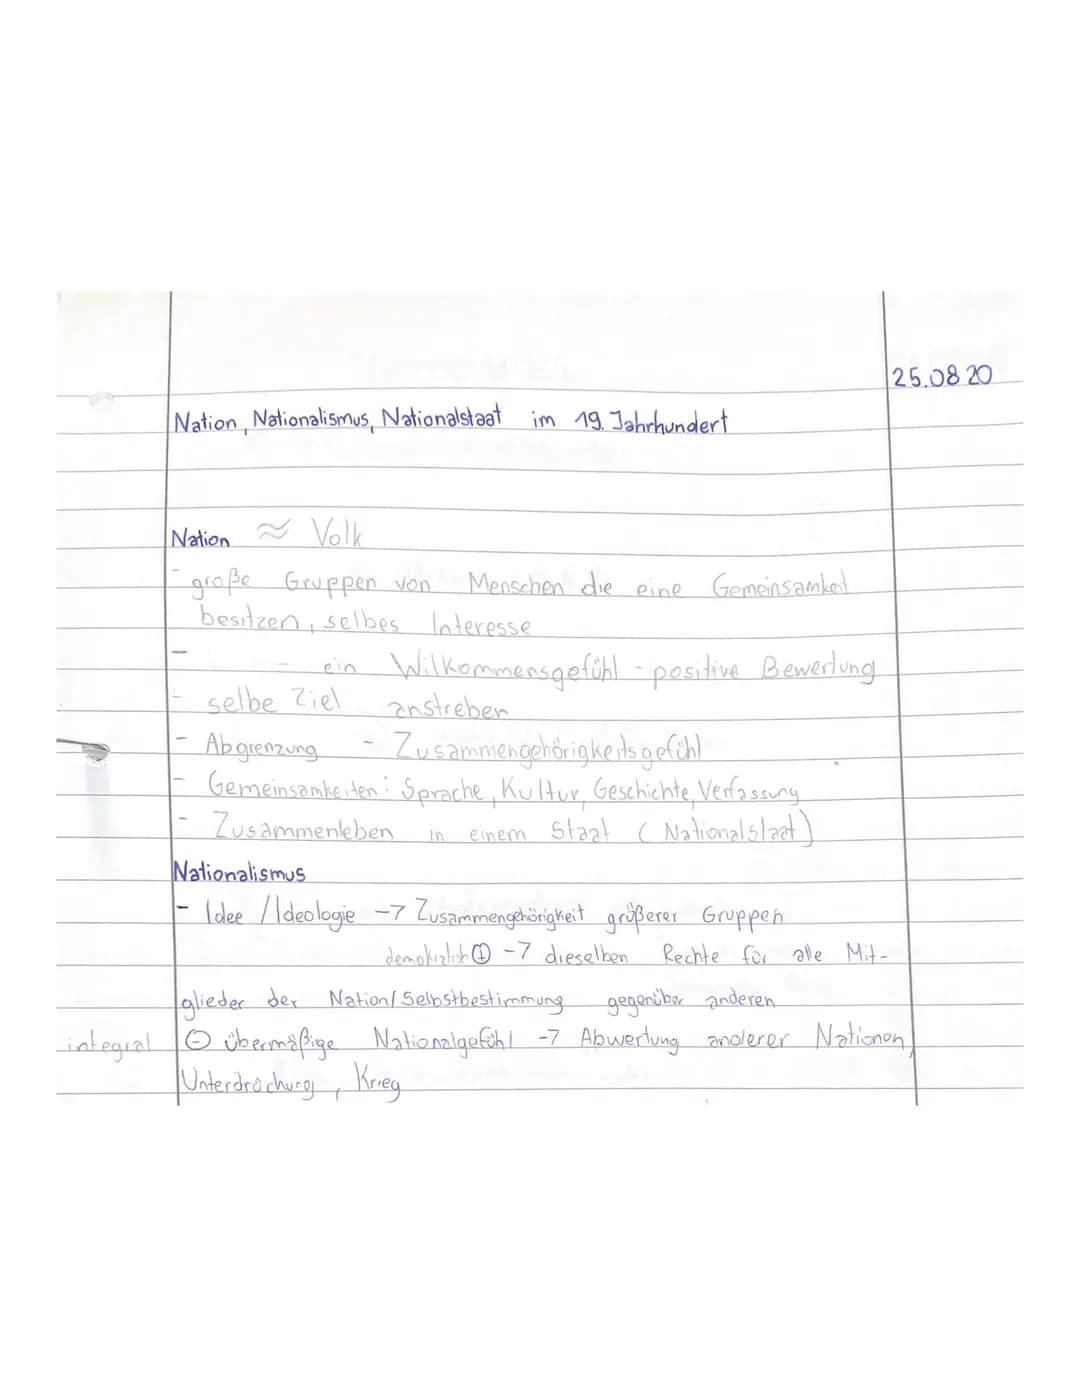 25.08 20
Nation, Nationalismus, Nationalstaat im 19. Jahrhundert
Nation ≈ Volk
- große Gruppen von Menschen die eine Gemeinsamkeit
besitzen, selbes Interesse
- ein Wilkommensgefühl - positive Bewertung
- selbe Ziel anstreben
- Abgrenzung - Zusammengehörigkeitsgefühl
- Gemeinsamkeiten: Sprache, Kultur, Geschichte, Verfassung
- Zusammenleben in einem Staat (Nationalstaat)
Nationalismus
- Idee / Ideologie -> Zusammengehörigkeit größerer Gruppen
demokratisch ⊕ -> dieselben Rechte für alle Mit-
glieder der Nation/Selbstbestimmung gegenüber anderen
integral ⊖ übermäßige Nationalgefühl -> Abwertung anderer Nationen,
Unterdrückung, Krieg